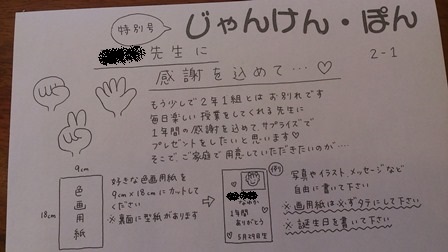 特別号
じゃんけん・ぽん
先生に
2-1
感謝を込めて…♡
もう少しで2年1組とは お別れです
毎日楽しい 授業をしてくれる 先生に
1年間の感謝を込めて、サプライズで
プレゼントをしたいと思います♡
そこで、ご家庭で用意していただきたいのが‥‥
9cm
18cm
色画用紙
好きな色画用紙を
9cm×18cmにカットして
ください
※裏面に型紙があります
例)
1年間
ありがとう
5月29日生
写真やイラスト、メッセージなど
自由に書いて下さい
※画用紙は必ずタテにして下さい
※誕生日を書いて下さい